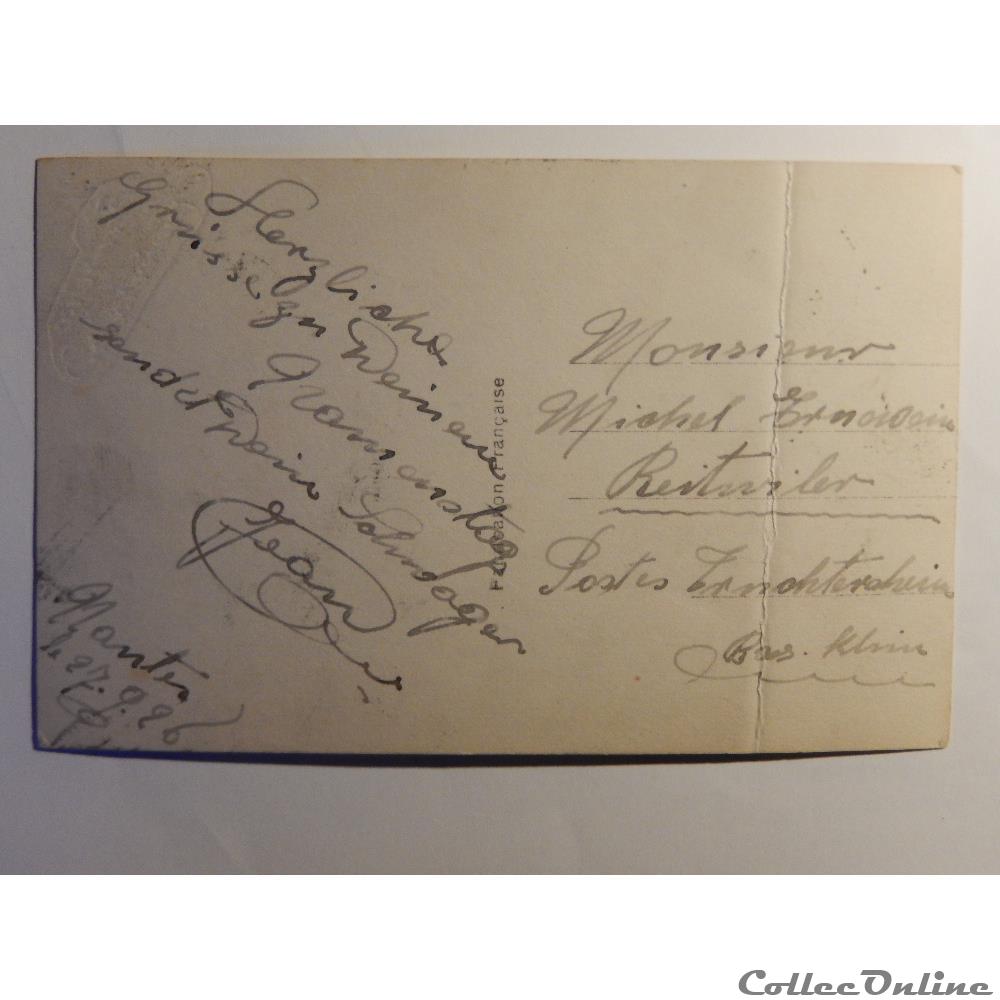 Herzliche
Grüsse zu Deinem
Namenstag
sendet Dein Schwager
Jean
Nantes
le 27.9.26
Fabrication Française
Monsieur
Michel Ernewein
Reitwiler
Postes Truchtersheim
Bas. Rhin
CollecOnline